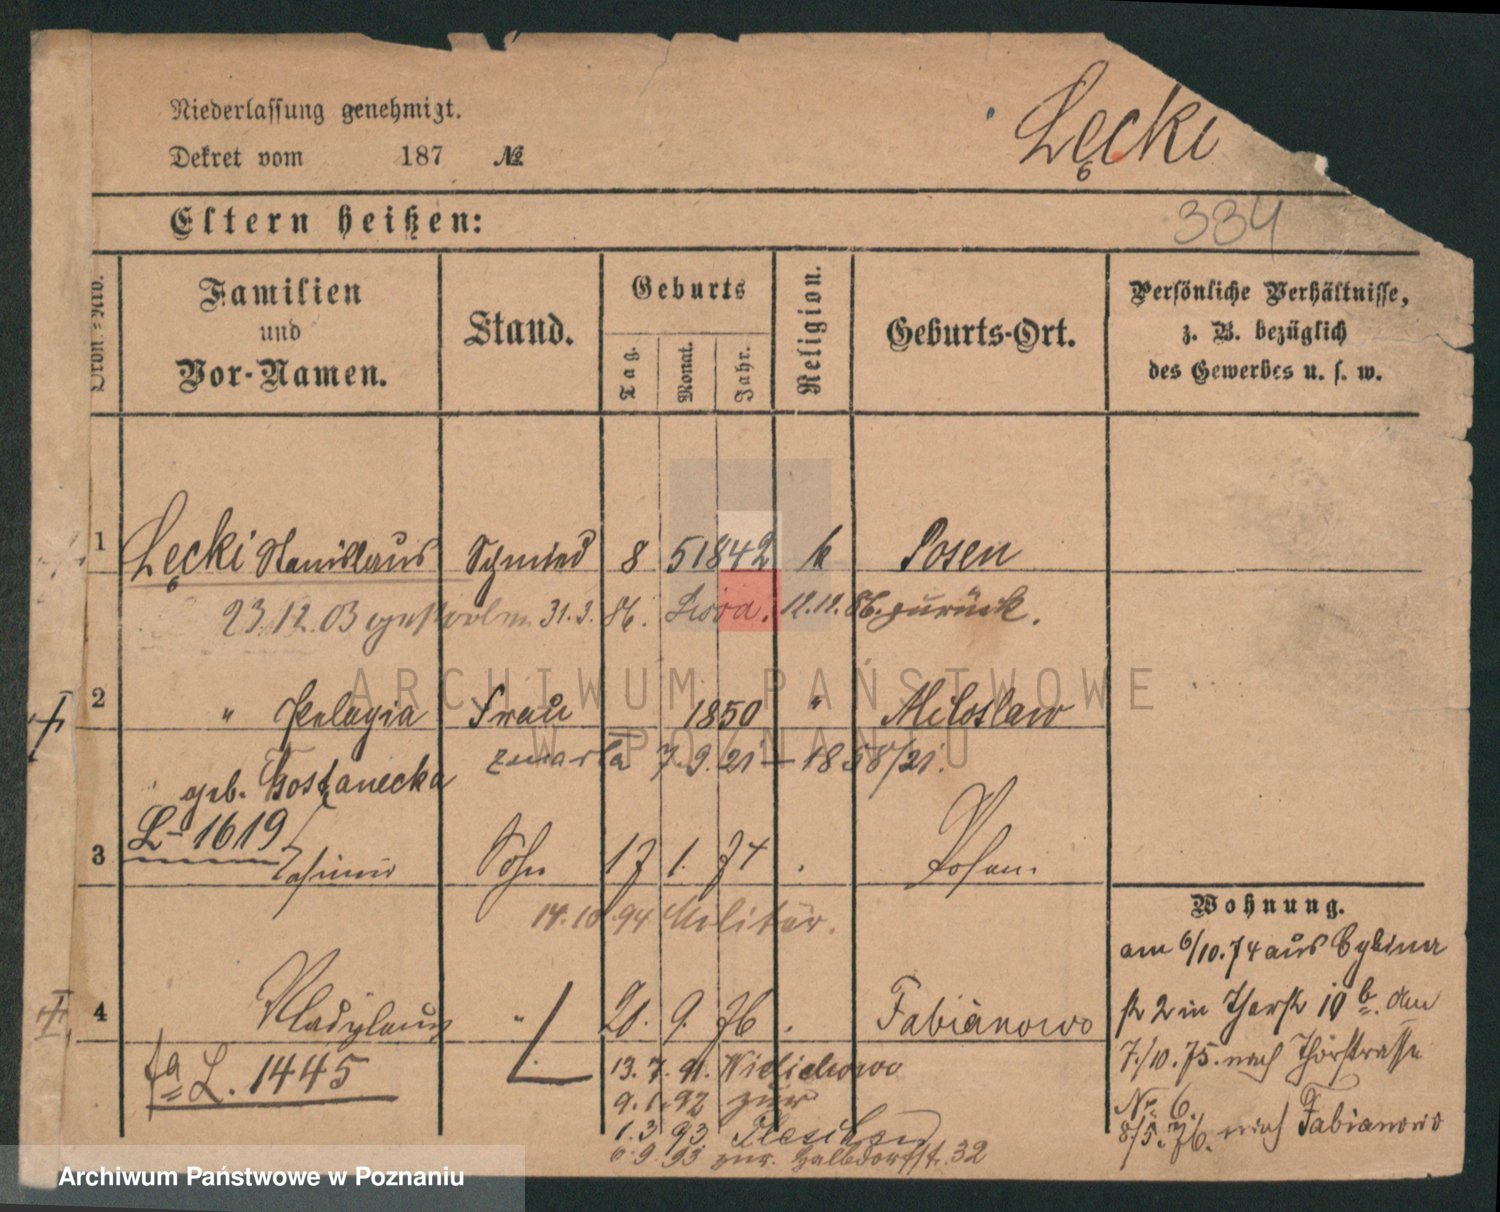 Niederlassung genehmigt.
Łęcki
Dekret vom 187 №
Eltern heißen:
334
Familien und Vor-Namen.
Stand.
Geburts
Tag.
Monat.
Jahr.
Religion.
Geburts-Ort.
Persönliche Verhältnisse,
z. B. bezüglich
des Gewerbes u. s. w.
1 Łęcki Stanislaus Schmied 8 5 1842 k Posen
23.12.03 gestorben 31.3.86. 12.12.86. zurück.
2 " Pelagia Frau 1850 " Miloslaw
zmarła 7.9.21 – 1858/21.
geb. Gostanecka
L – 1619
3 Sohn 17 1. 74 Posen.
14.10 94 Militär.
Wohnung.
am 6/10.74 aus
4 Wladyslaus " 20. 9. 76 Fabianowo
2 in 10 b. den
7./10.75. nach
fa L. 1445
13.7.91. Wielichowo
9.1.92 zur
No. 6.
1.3 93.
8/5.76. nach Fabianowo
6.9.93 zur. Halbdorfstr. 32
ARCHIWUM PAŃSTWOWE
W POZNANIU
Archiwum Państwowe w Poznaniu